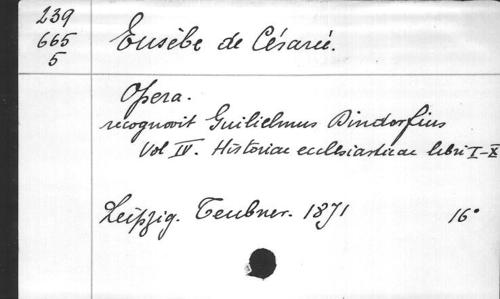 239
665
5
Eusèbe de Césarée.
Opera.
recognovit Guilielmus Dindorfius
Vol IV. Historiae ecclesiasticae libri I-X
Leipzig. Teubner. 1871 16°